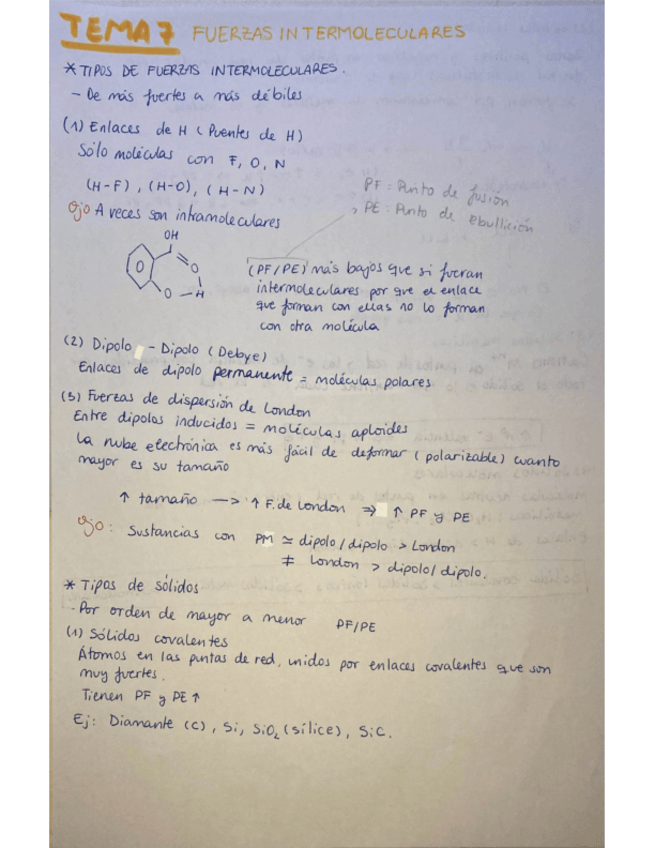 TEMA 7 FUERZAS INTERMOLECULARES
* TIPOS DE FUERZAS INTERMOLECULARES.
- De más fuertes a más débiles
(1) Enlaces de H (Puentes de H)
Sólo moléculas con F, O, N
(H-F), (H-O), (H-N)
PF: Punto de fusión
PE: Punto de ebullición
Ojo A veces son intramoleculares
OH
O
O
O - H
(PF/PE) más bajos que si fueran
intermoleculares por que el enlace
que forman con ellas no lo forman
con otra molécula
(2) Dipolo - Dipolo (Debye)
Enlaces de dipolo permanente = moléculas polares
(3) Fuerzas de dispersión de London
Entre dipolos inducidos = moléculas aploides
La nube electrónica es más fácil de deformar (polarizable) cuanto
mayor es su tamaño
↑ tamaño —> ↑ F. de London => ↑ PF y PE
Ojo: Sustancias con PM ≃ dipolo/dipolo > London
≠ London > dipolo/dipolo.
* Tipos de sólidos
- Por orden de mayor a menor PF/PE
(1) Sólidos covalentes
Átomos en las puntas de red, unidos por enlaces covalentes que son
muy fuertes.
Tienen PF y PE ↑
Ej: Diamante (C), Si, SiO₂ (sílice), SiC.